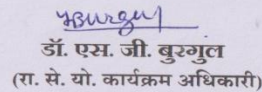 डॉ. एस. जी. बुरगुल
(रा. से. यो. कार्यक्रम अधिकारी)